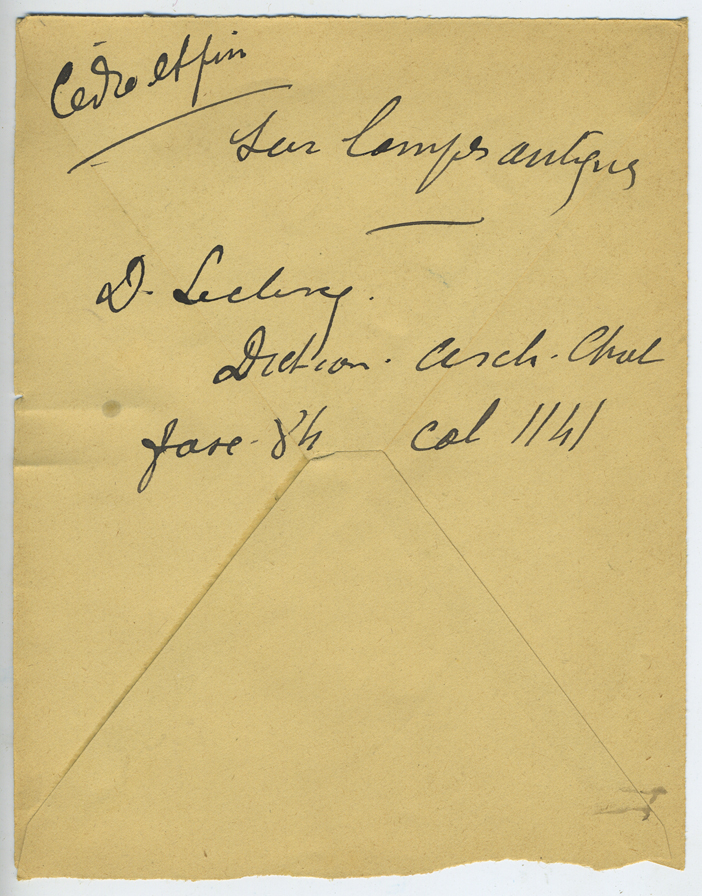 Cèdre et pin
sur lampes antiques
D. Leclercq.
Diction. arch. Chret
fasc. 84 col 1141